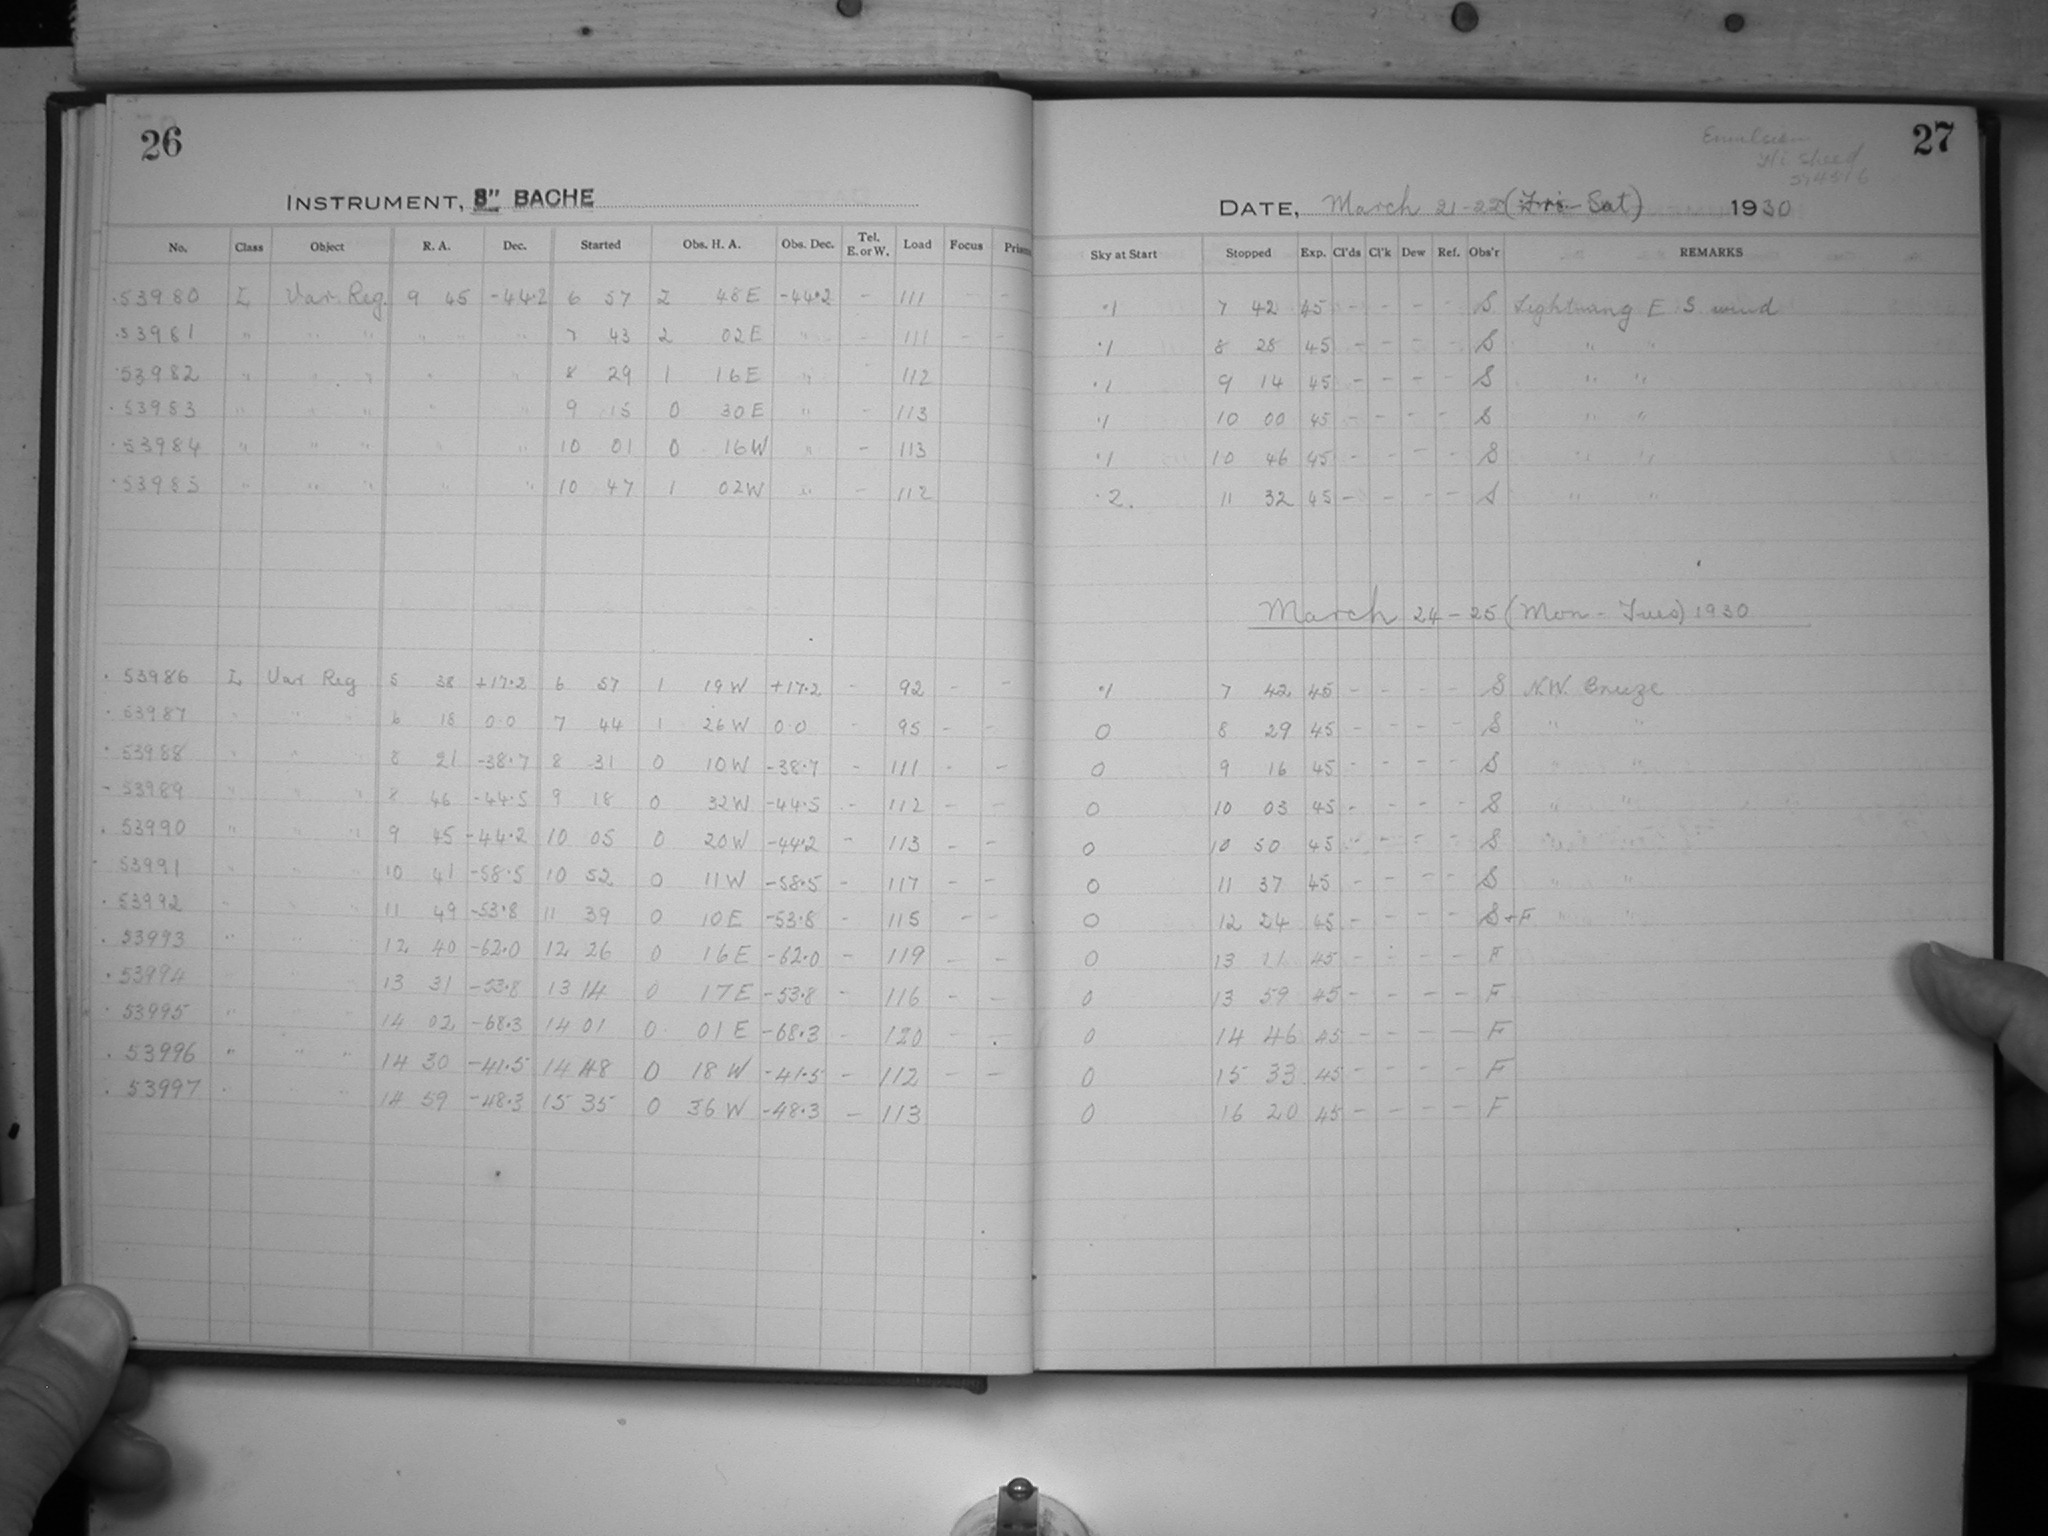 26
INSTRUMENT, 8" BACHE
No. Class Object R. A. Dec. Started Obs. H. A. Obs. Dec. Tel. E. or W. Load Focus Prism
53980 L Var. Reg. 9 45 -44.2 6 57 2 48 E -44.2 - 111 - -
53981 " " " " " " 7 43 2 02 E " - 111 - -
53982 " " " " " 8 29 1 16 E " 112
53983 " " " " " 9 15 0 30 E " - 113
53984 " " " " " 10 01 0 16 W " - 113
53985 " " " " " 10 47 1 02 W " - 112
53986 L Var Reg 5 38 +17.2 6 57 1 19 W +17.2 - 92 - -
53987 " " 6 18 0.0 7 44 1 26 W 0.0 - 95 - -
53988 " " " 8 21 -38.7 8 31 0 10 W -38.7 - 111 - -
53989 " " " 8 46 -44.5 9 18 0 32 W -44.5 - 112 - -
53990 " " " 9 45 -44.2 10 05 0 20 W -44.2 - 113 - -
53991 " " " 10 41 -58.5 10 52 0 11 W -58.5 - 117 - -
53992 " " " 11 49 -53.8 11 39 0 10 E -53.8 - 115 - -
53993 " " " 12 40 -62.0 12 26 0 16 E -62.0 - 119 - -
53994 " " " 13 31 -53.8 13 14 0 17 E -53.8 - 116 - -
53995 " " " 14 02 -68.3 14 01 0 01 E -68.3 - 120 - -
53996 " " " 14 30 -41.5 14 48 0 18 W -41.5 - 112 - -
53997 " " 14 59 -48.3 15 35 0 36 W -48.3 - 113
27
Emulsion
DATE, March 21-22 (Fri- Sat) 1930
Sky at Start Stopped Exp. Cl'ds Cl'k Dew Ref. Obs'r REMARKS
.1 7 42 45 - - - - S Lightning E. S. wind
.1 8 28 45 - - - - S " "
.1 9 14 45 - - - - S " "
.1 10 00 45 - - - - S " "
.1 10 46 45 - - - - S " "
.2. 11 32 45 - - - - S " "
March 24-25 (Mon - Tues) 1930
.1 7 42 45 - - - - S N.W. Breeze
0 8 29 45 - - - - S " "
0 9 16 45 - - - - S " "
0 10 03 45 - - - - S " "
0 10 50 45 - - - - S "
0 11 37 45 - - - - S " "
0 12 24 45 - - - - S+F " "
0 13 11 45 - - - - F
0 13 59 45 - - - - F
0 14 46 45 - - - - F
0 15 33 45 - - - - F
0 16 20 45 - - - - F